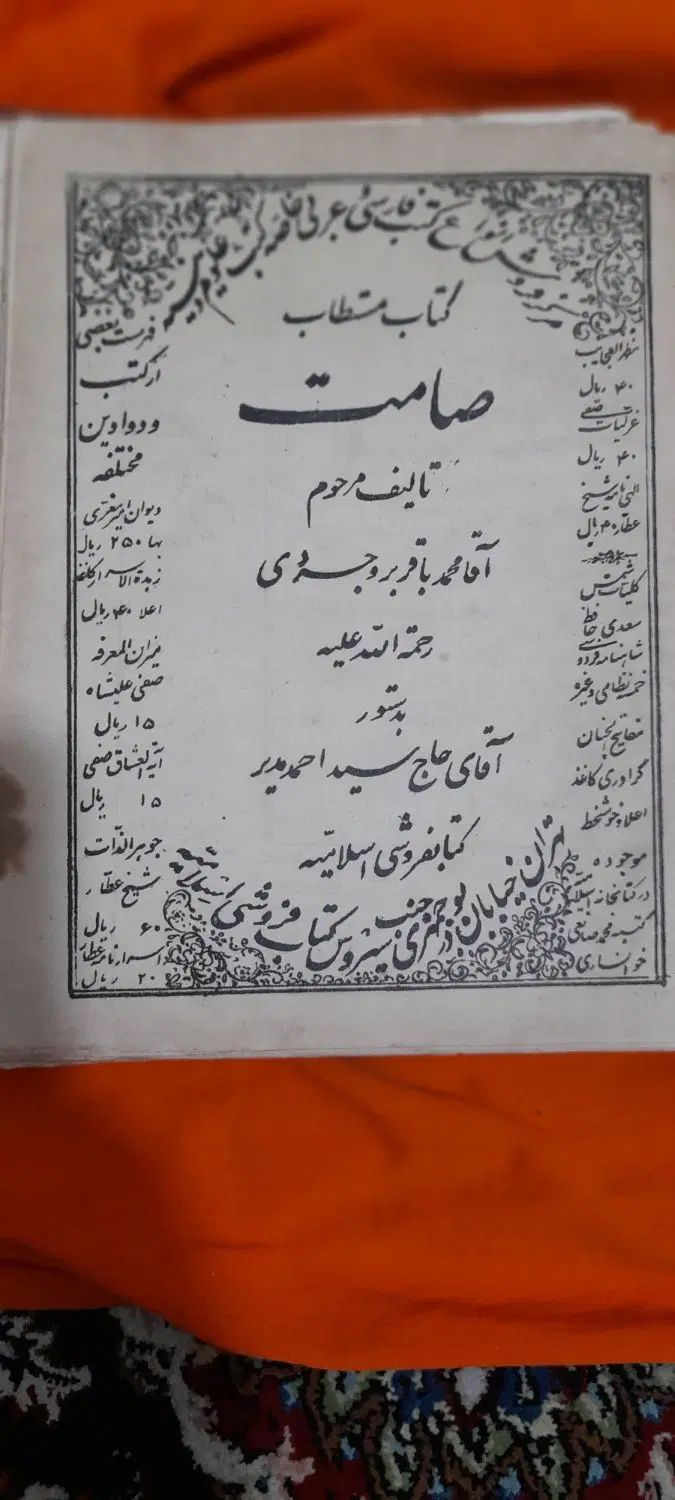 مرکز فروش انواع کتب فارسی و عربی علمیه
کتاب مستطاب
صامت
تالیف مرحوم
آقا محمد باقر بروجردی
رحمة الله علیه
بدستور
آقای حاج سید احمد مدیر
کتابفروشی اسلامیه
تهران خیابان بوذرجمهری جنب سیروس کتاب فروشی اسلامیه
مظهر العجایب
۴۰ ریال
غزلیات صفی
۴۰ ریال
الهی نامه شیخ
عطار ۴۰ ریال
کلیات شمس
سعدی حافظ
شاهنامه فردوسی
خمسه نظامی و غیره
مفاتیح الجنان
گراوری کاغذ
اعلا و خوشخط
موجوده
در کتابخانه اسلامیه
کتبه محمد صانعی
خوانساری
فهرست بعضی
از کتب
و دواوین
مختلفه
دیوان امیر معزی
بها ۲۵۰ ریال
زبدة الاسرار کاغذ
اعلا ۴۰ ریال
میزان المعرفه
صفی علیشاه
۱۵ ریال
آیة العشاق صفی
۱۵ ریال
جوهر الذات
شیخ عطار
۶۰ ریال
و اسرار نامه عطار
۲۰ ریال